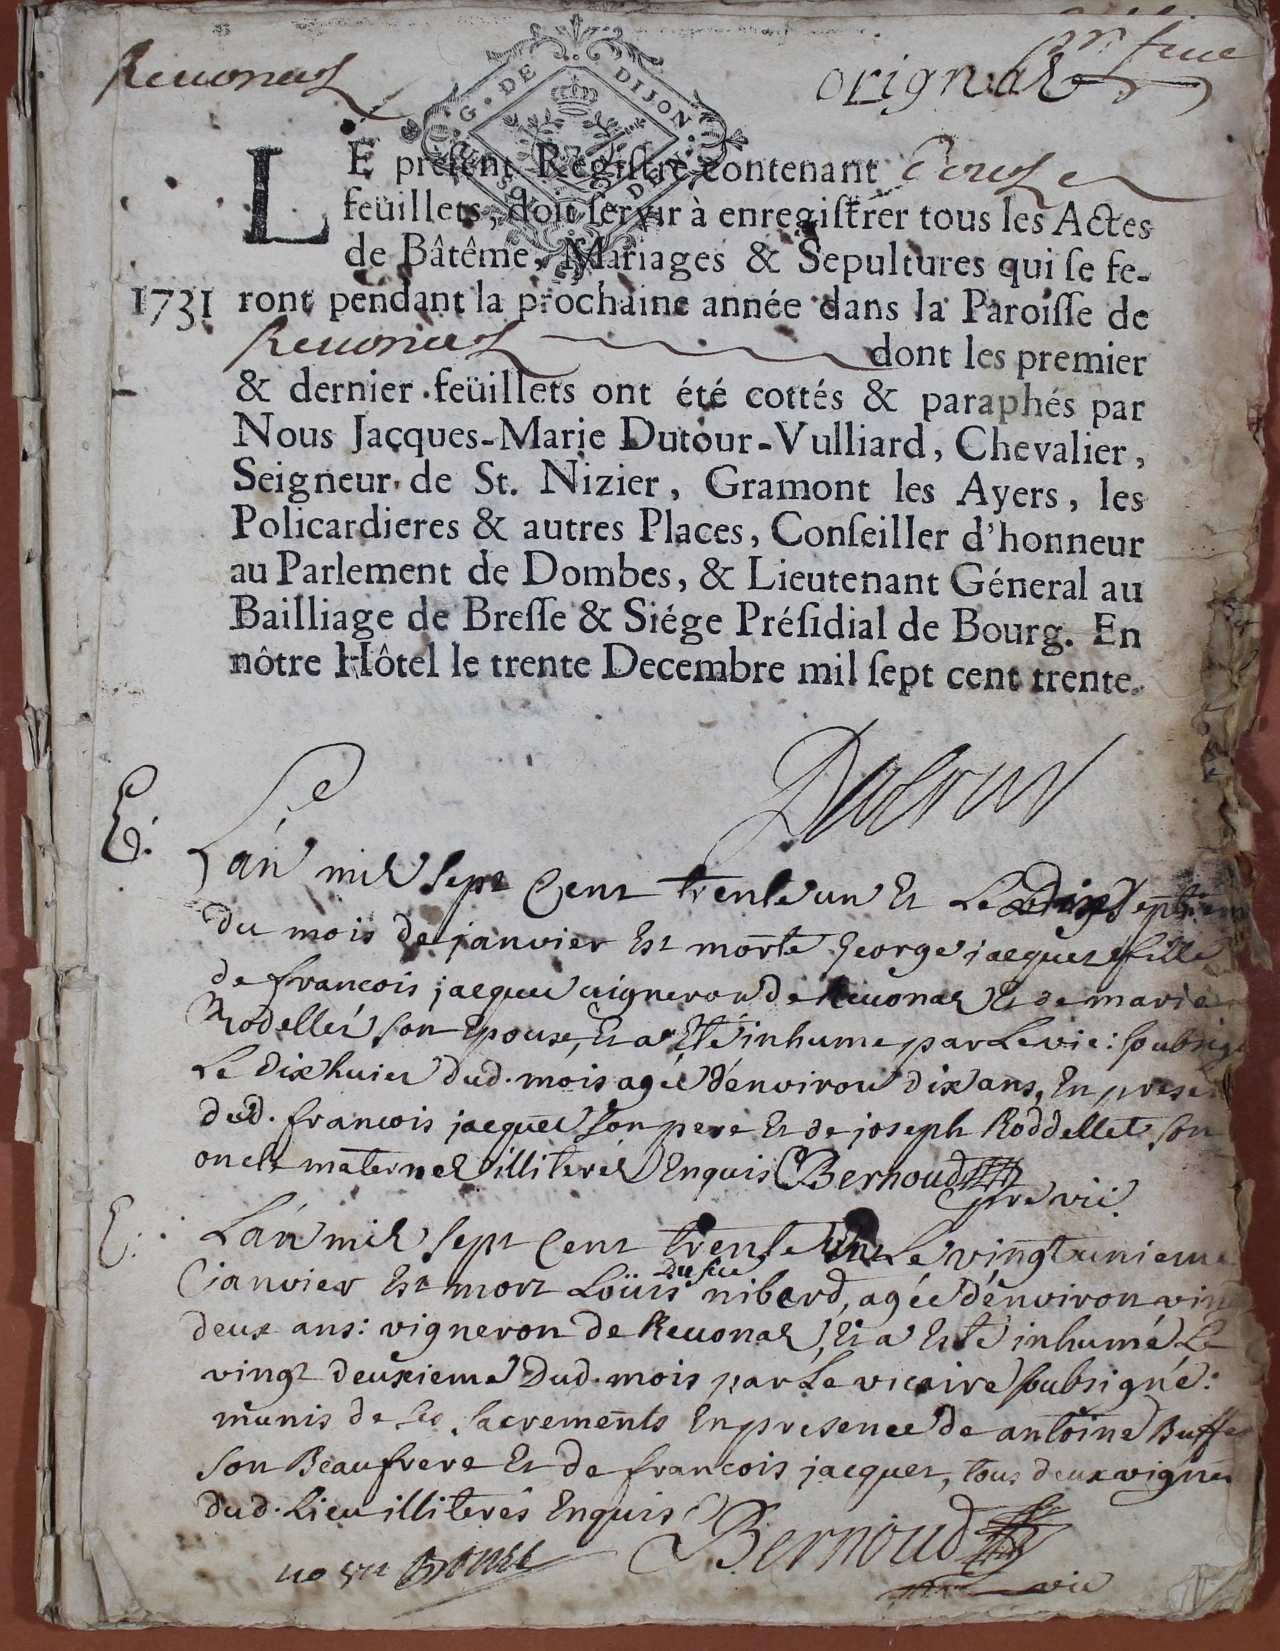 Revonas
original
G. DE DIJON
LE preſent Regiſtre contenant douze
feüillets, doit ſervir à enregiſtrer tous les Actes
de Bâtême, Mariages & Sepultures qui ſe fe-
1731 ront pendant la prochaine année dans la Paroiſſe de
Revonas dont les premier
& dernier feüillets ont été cottés & paraphés par
Nous Jacques-Marie Dutour-Vulliard, Chevalier,
Seigneur de St. Nizier, Gramont les Ayers, les
Policardieres & autres Places, Conſeiller d'honneur
au Parlement de Dombes, & Lieutenant Géneral au
Bailliage de Breſſe & Siége Préſidial de Bourg. En
nôtre Hôtel le trente Decembre mil ſept cent trente.
Dutour
E. L'an mil sept Cent trente un Et Le dix septiem
du mois de janvier Est morte George jacquet fille
de francois jacquet vigneron de Revonas Et de marie
Rodellet son Epouse, Et a Eté inhume par Le vic: soubsig
Le Dixhuict dud. mois agée d'environ dix ans, En prese
dud. francois jacquet son pere Et de joseph Roddellet son
oncle maternel illiterés Enquis Bernoud
pre vic.
E. L'an mil sept Cent trente un Le vingt unieme
janvier Est mort Loüis niberd, agée d'environ vin
deux ans: vigneron de Revonas, Et a Esté inhumé Le
vingt deuxieme Dud. mois par Le vicaire soubsigné:
munis de ses sacrements En presence de antoine Buffe
son Beaufrere Et de francois jacquet, tous deux vigne
dud. Lieu illiterés Enquis Bernoud
vic